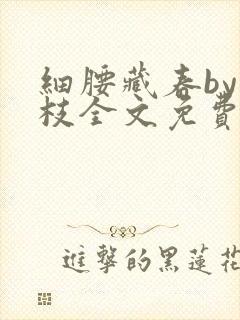 細腰藏春by
枝全文免費
進擊的黑蓮花